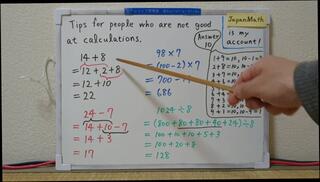 Tips for people who are not good
at calculations.
14+8
=12+2+8
=12+10
=22
24-7
=14+10-7
=14+3
=17
98×7
=(100-2)×7
=700-14
=686
1024÷8
=(800+80+80+40+24)÷8
=100+10+10+5+3
=100+20+8
=128
Answer
10
JapanMath
is my
account!